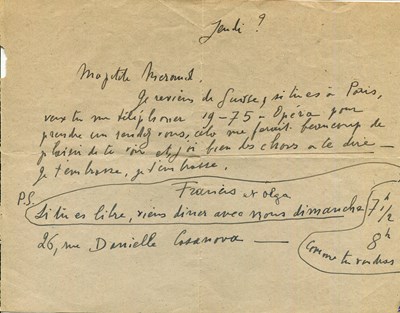 Jeudi ?
Ma petite
Je reviens de Suisse, si tu es à Paris,
veux tu me téléphoner 19-75-Opéra pour
prendre un rendez vous, cela me ferait beaucoup de
plaisir de te voir et j'ai bien des choses à te dire —
Je t'embrasse, je t'embrasse.
Francis et Olga
P.S. Si tu es libre, viens diner avec nous dimanche 7h 1/2
8h
Comme tu voudras
26, rue Danielle Casanova —